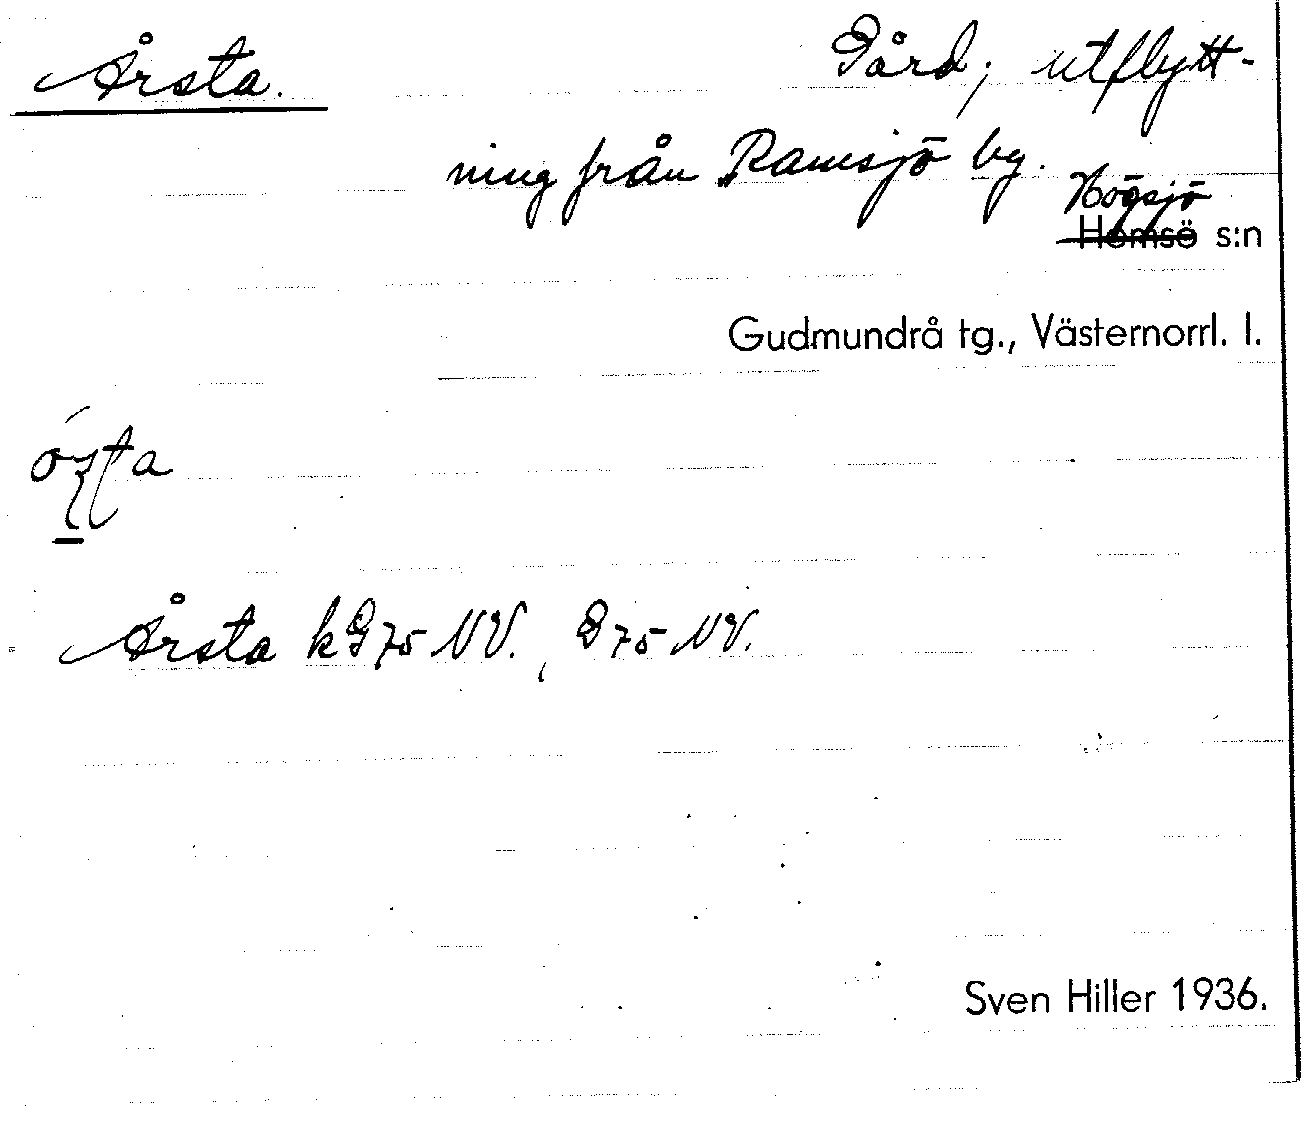 Årsta.
Gård; utflytt-
ning från Ramsjö by.
Högsjö
Hemsö s:n
Gudmundrå tg., Västernorrl. l.
Årsta kG 75 NV., G 75 NV.
Sven Hiller 1936.